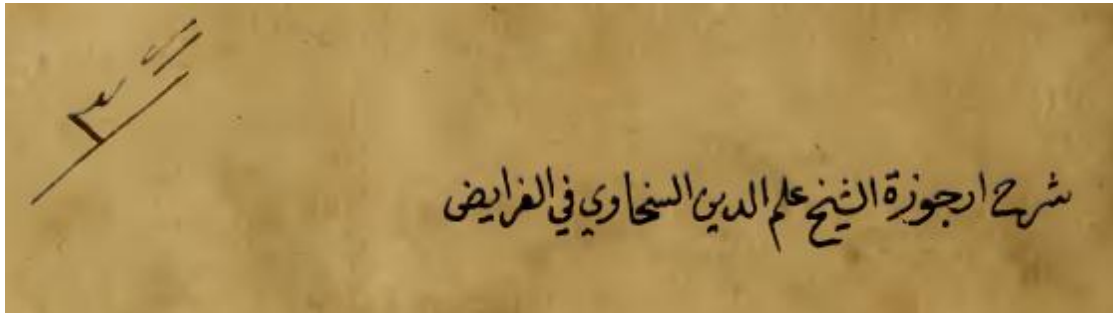 شرح ارجوزة الشيخ علم الدين السخاوي في الفرايض